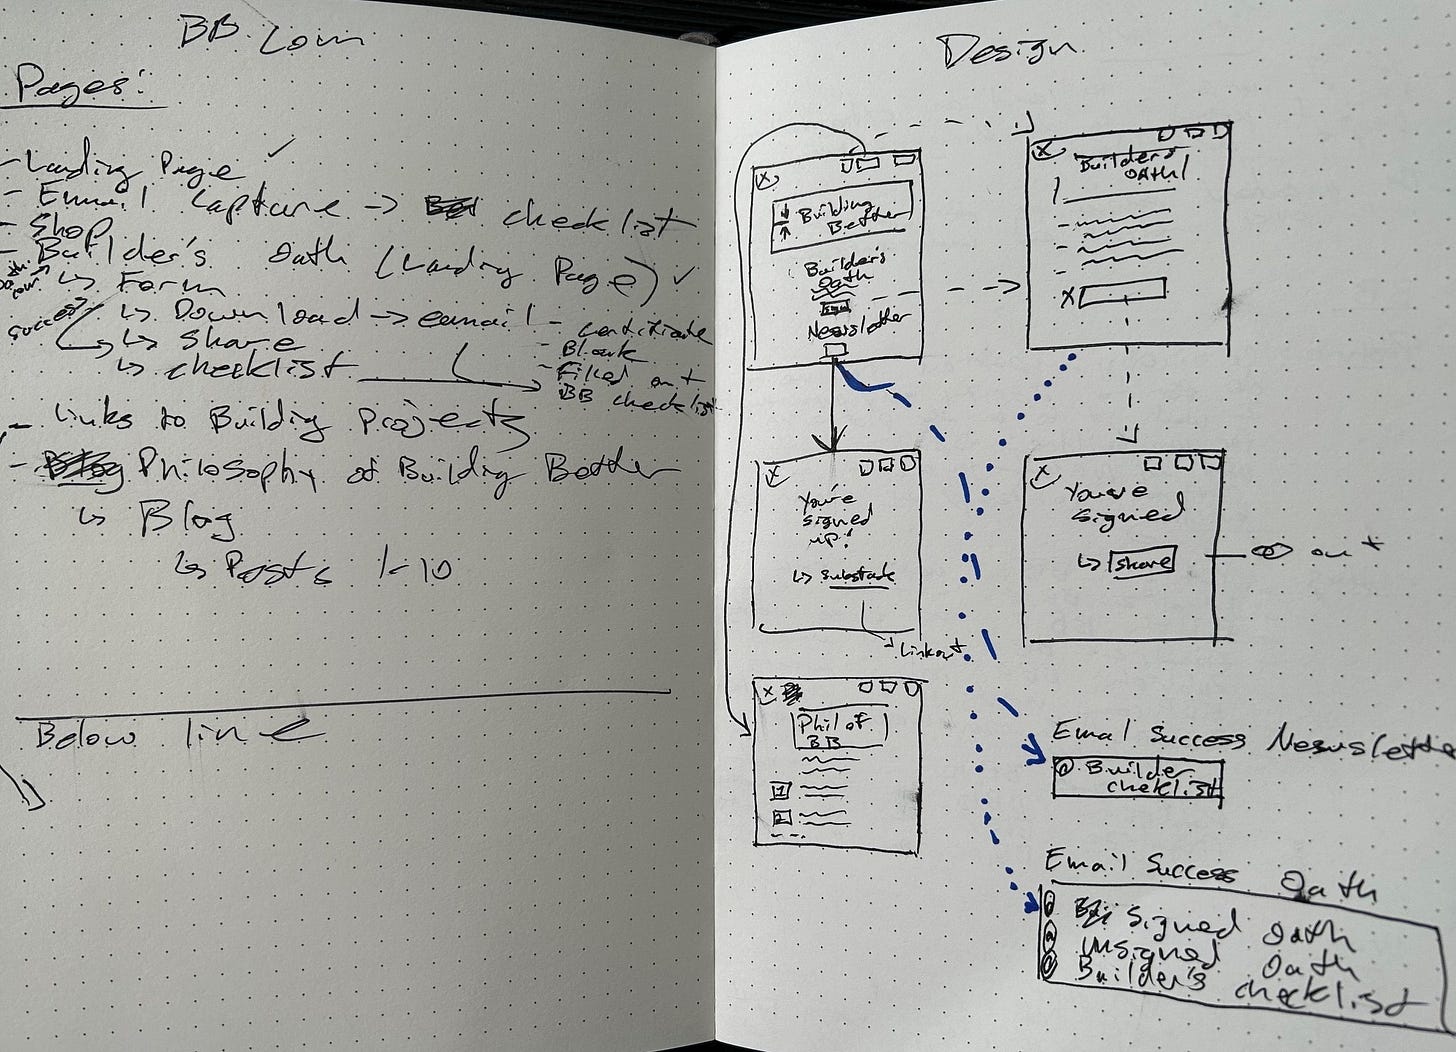 BB.com
Pages:
- Landing Page ✓
- Email capture -> checklist
- Shop
- Builder's Oath (Landing Page) ✓
↳ Form
success
↳ Download -> email - certificate
↳ Share - Blank
↳ checklist - Filled out
BB checklist
- Links to Building Projects
- Philosophy of Building Better
↳ Blog
↳ Posts 1-10
Below line
Design
X
Building
Better
Builder's
Oath
Newsletter
X
Builders
Oath
X
X
You're
signed
up!
↳ Substack
Linkout
X
You've
signed
↳ Share
out
X
Phil of
BB
1
2
Email Success Newsletter
@ Builder
checklist
Email Success Oath
@ Signed Oath
@ Unsigned Oath
@ Builder's checklist